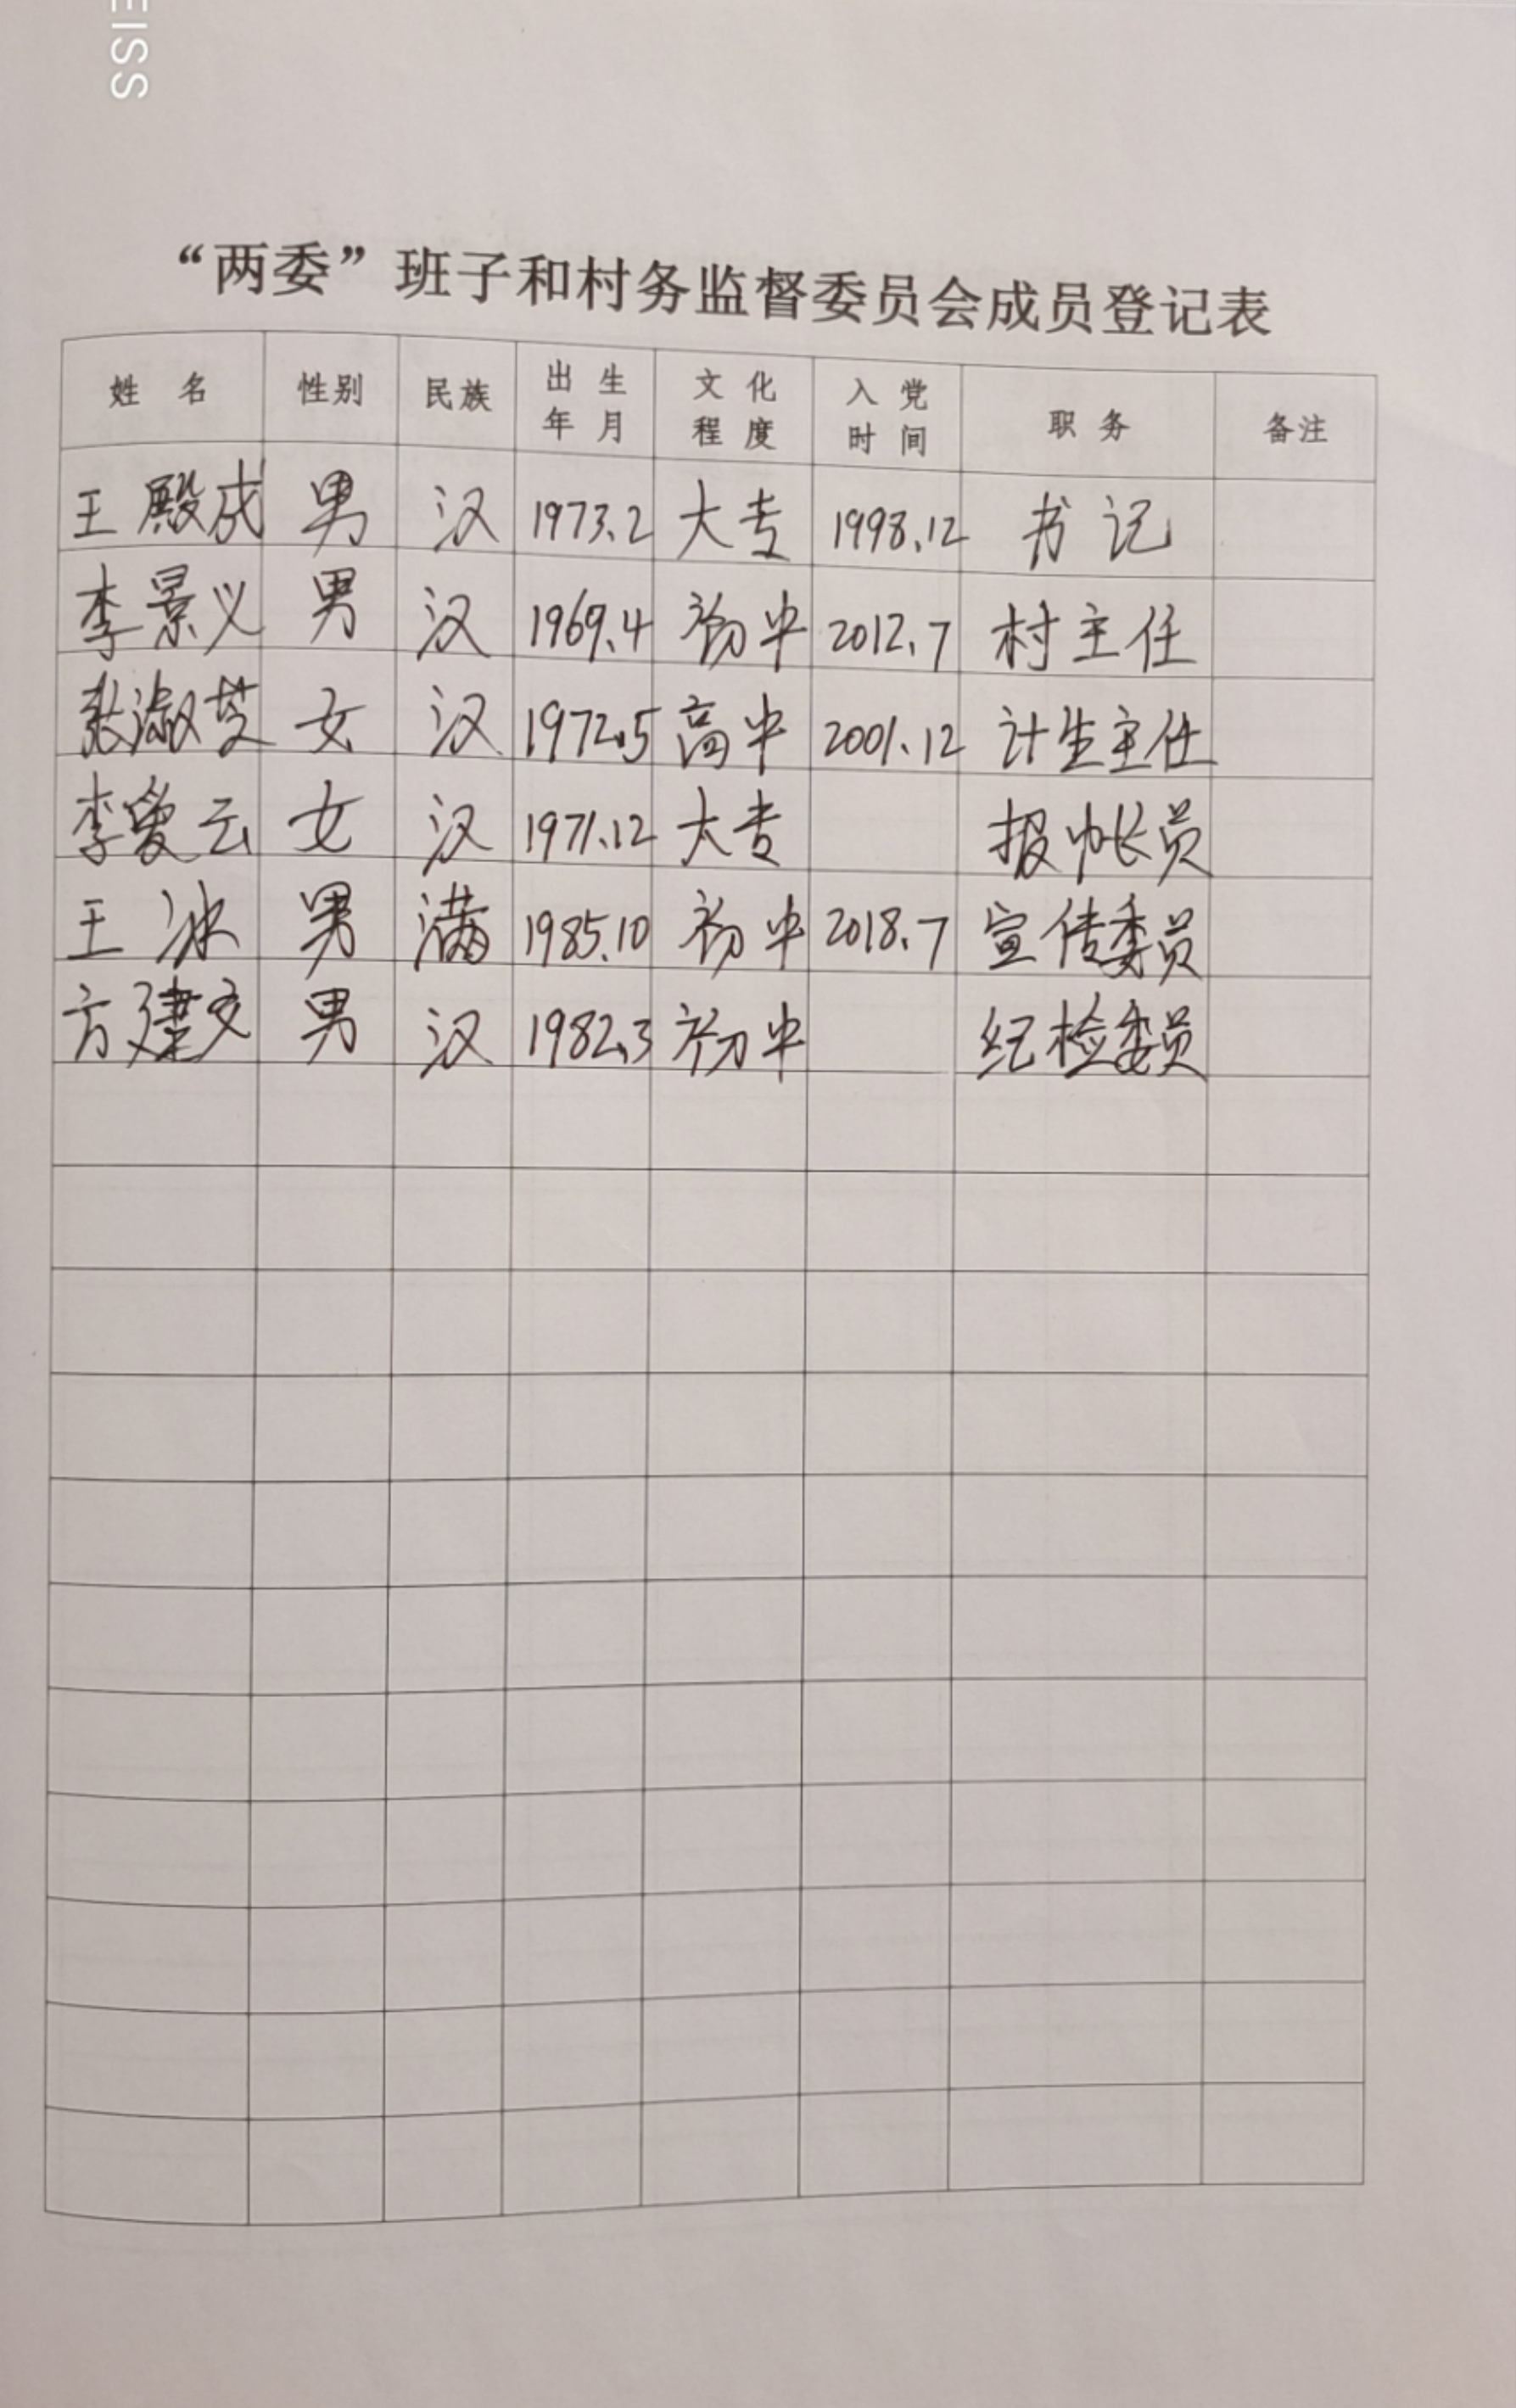 EISS
“两委”班子和村务监督委员会成员登记表
姓 名 性别 民族 出生年月 文化程度 入党时间 职务 备注
王殿成 男 汉 1973.2 大专 1998.12 书记
李景义 男 汉 1969.4 初中 2012.7 村主任
张淑芝 女 汉 1972.5 高中 2001.12 计生主任
李爱云 女 汉 1971.12 大专 报帐员
王冰 男 满 1985.10 初中 2018.7 宣传委员
方建文 男 汉 1982.3 初中 纪检委员